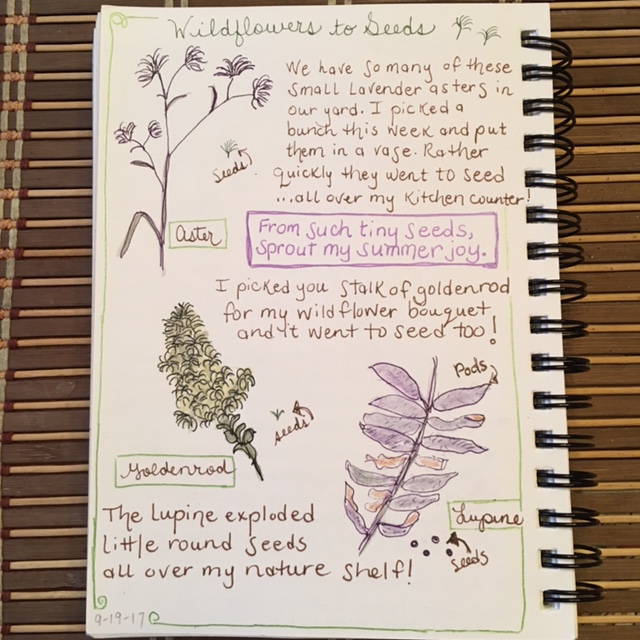 Wildflowers to Seeds
We have so many of these
small lavender asters in
our yard. I picked a
bunch this week and put
them in a vase. Rather
quickly they went to seed
...all over my kitchen counter!
Seeds
Aster
From such tiny seeds,
sprout my summer joy.
I picked you stalk of goldenrod
for my wildflower bouquet
and it went to seed too!
Pods
seeds
Goldenrod
Lupine
The Lupine exploded
little round seeds
all over my nature shelf!
seeds
9-19-17